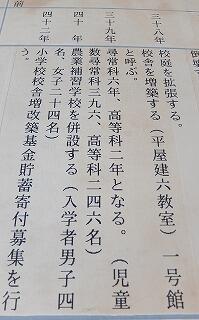 三十八年　校庭を拡張する。
校舎を増築する（平屋建六教室）　一号館
と呼ぶ。
三十九年　尋常科六年、高等科二年となる。（児童
数尋常科三九六、高等科二四六名）
四十年　農業補習学校を併設する（入学者男子四
名、女子二十四名）
四十二年　小学校校舎増改築基金貯蓄寄付募集を行
う。